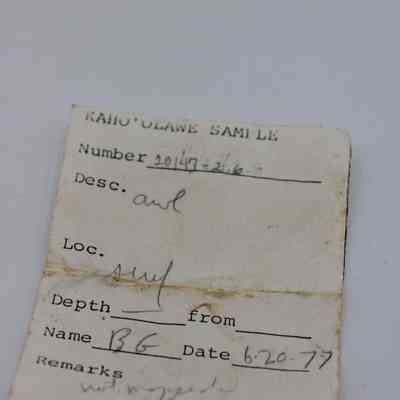 KAHO'OLAWE SAMPLE
Number 20147-26-
Desc. awl
Loc. surf
Depth — from
Name BG Date 6-20-77
Remarks
not